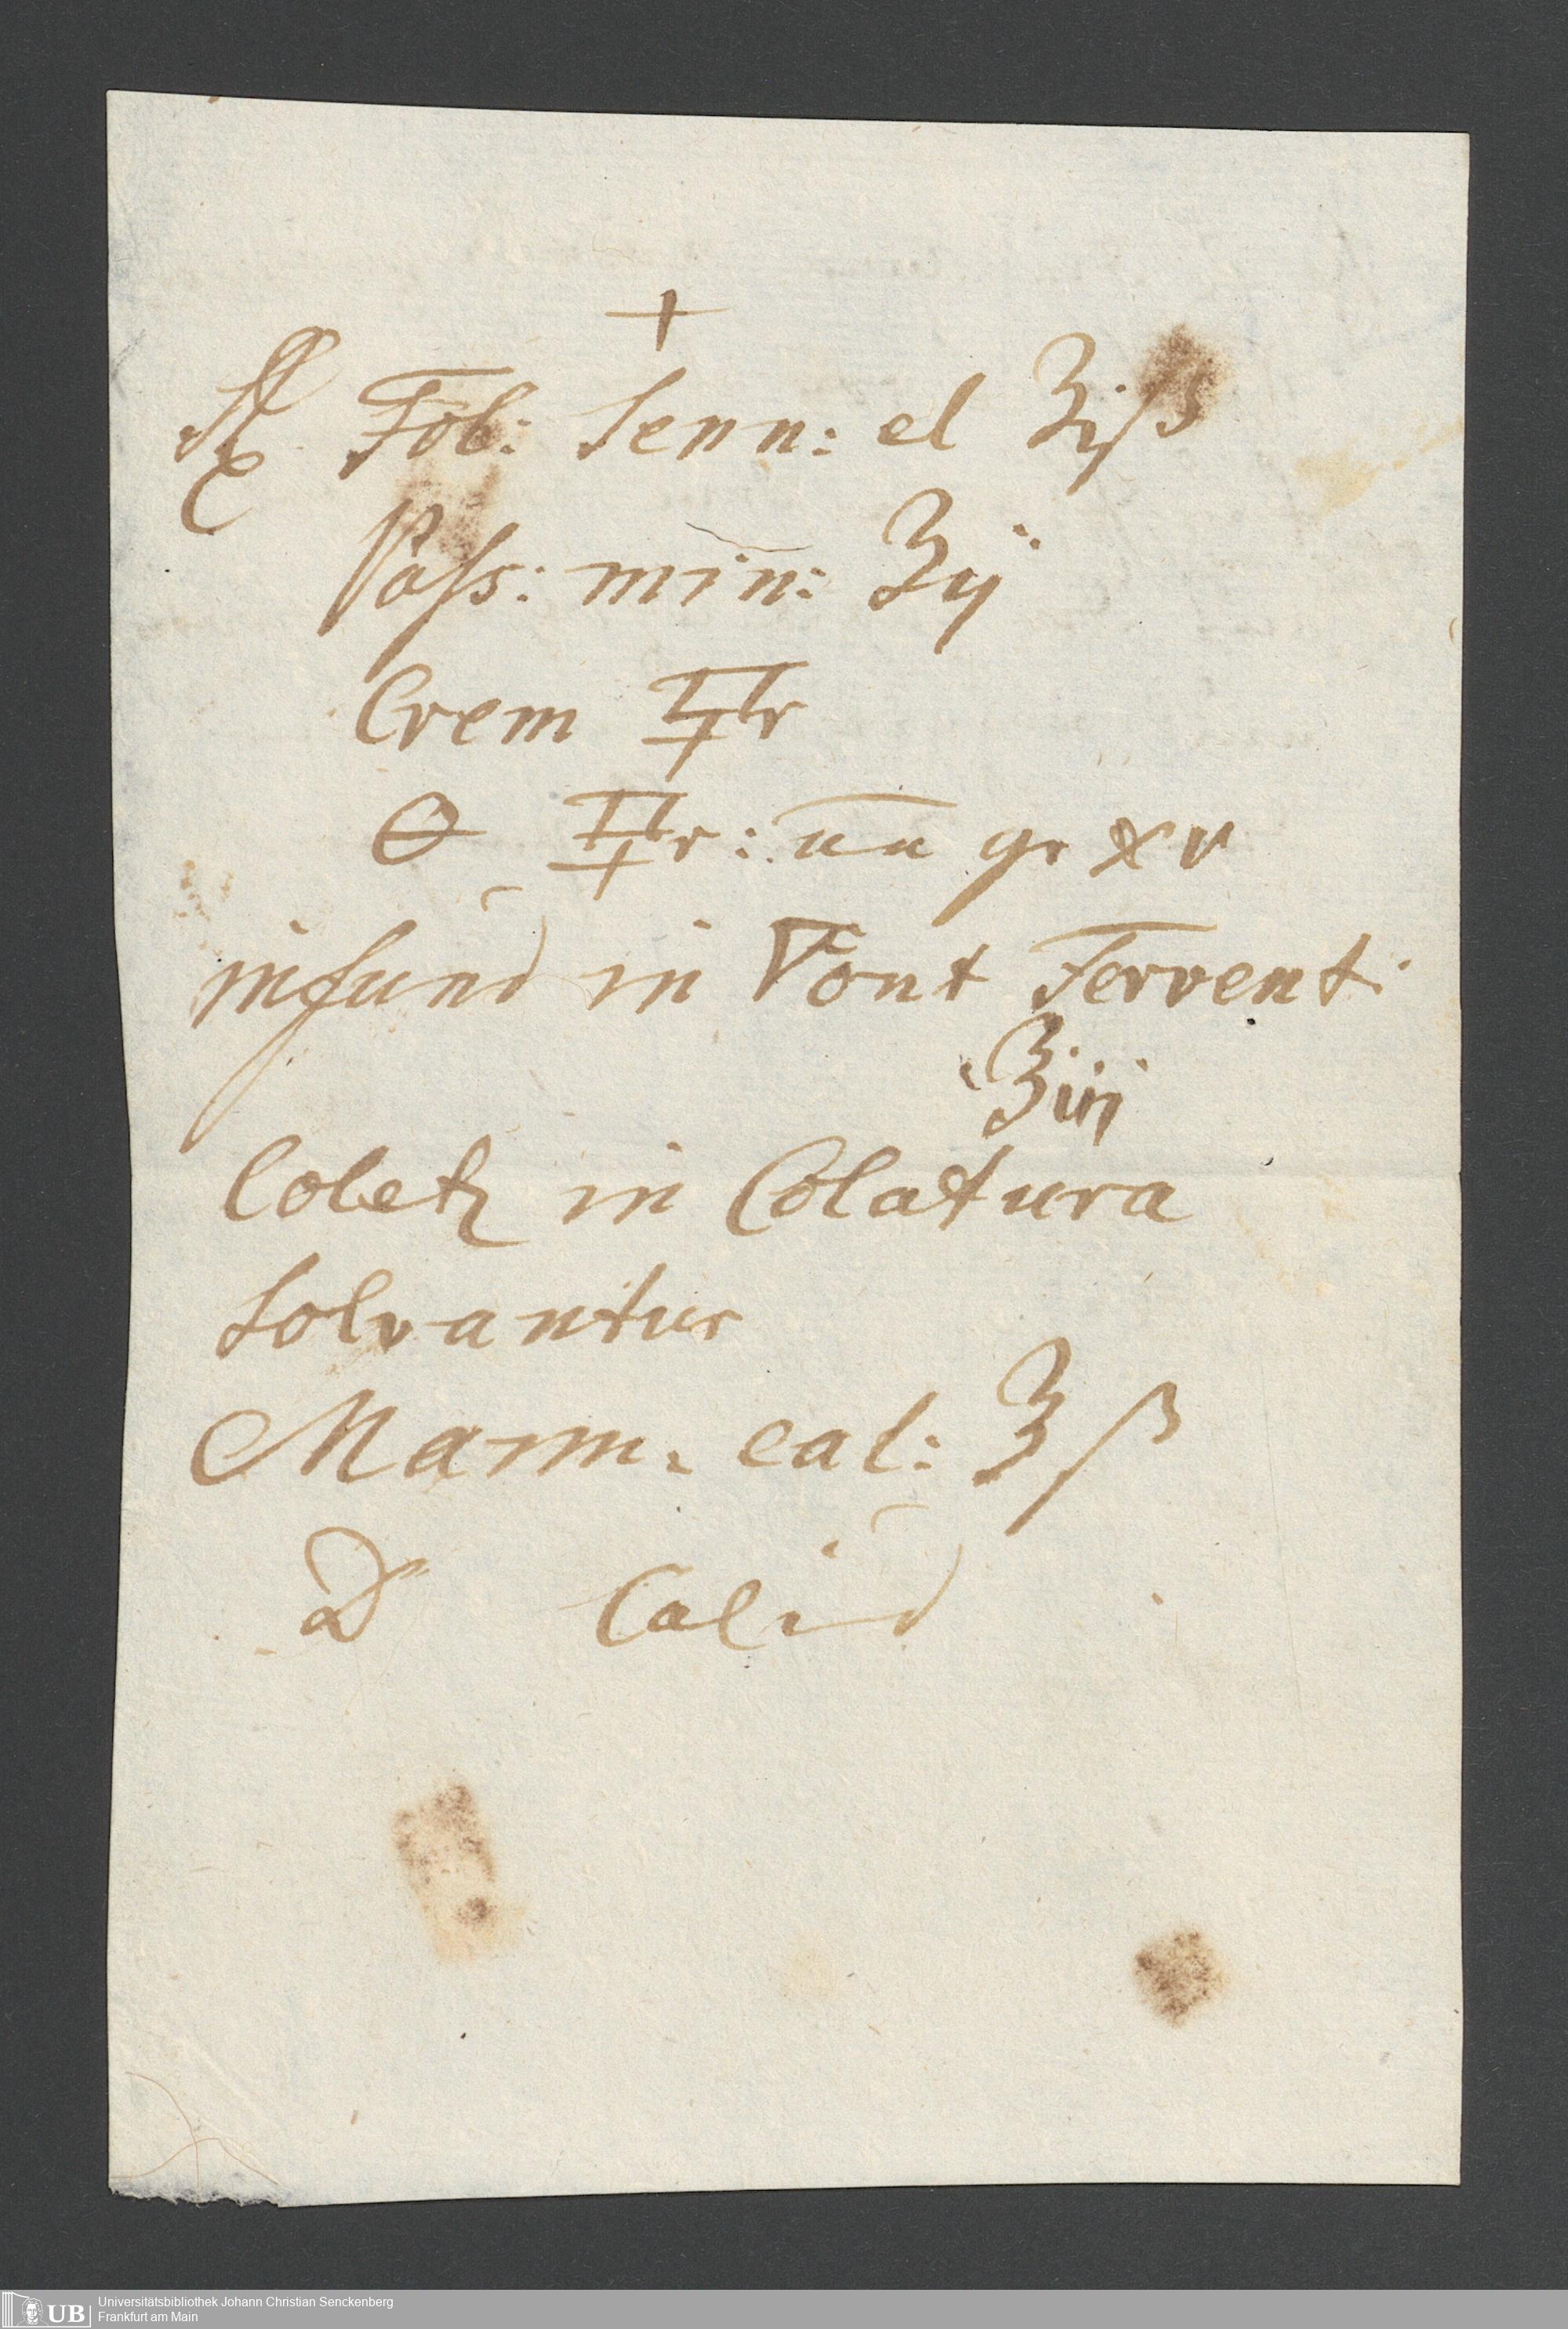 +
℞ Fol: Senn: el ʒiß
Pass: min: ʒij
Crem 🜿r
🜔 🜿r: aa gr xv
infund in Font Fervent.
℥iij
Colet in Colatura
Solvantur
Mann. cal: ℥ß
D Calid
UB Universitätsbibliothek Johann Christian Senckenberg
Frankfurt am Main